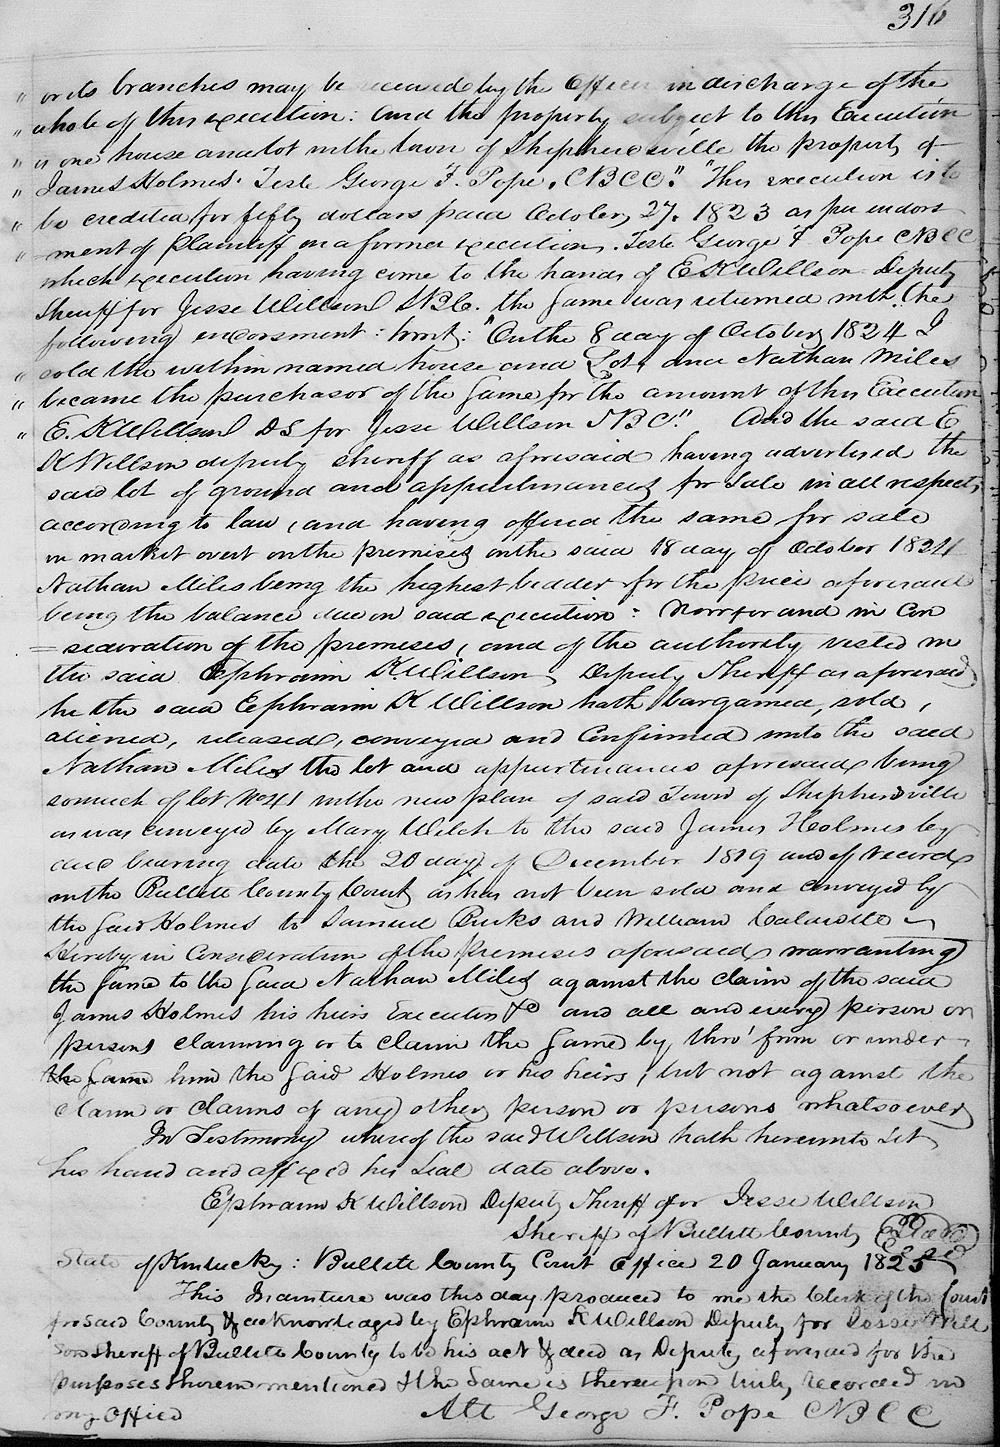 316
" or its branches may be received by the Officer in discharge of the
" whole of this execution: And the property subject to this Execution
" is one house and lot in the town of Shepherdsville the property of
" James Holmes. Teste George F. Pope, CBCC." "This execution is to
" be credited for fifty dollars paid October 27. 1823 as per endors
" =ment of Plaintiff on a former execution. Teste George F Pope CBCC
which execution having come to the hands of E K Willson Deputy
Sheriff for Jesse Willson SBC. the same was returned with the
following endorsment: towit: "On the 8 day of October 1824 I
" sold the within named house and Lot, and Nathan Miles
" became the purchasor of the same for the amount of this Execution
" E. K Willson DS for Jesse Willson SBC." And the said E
K Willson deputy sheriff as aforesaid having advertised the
said lot of ground and appurtinances for Sale in all respects
according to law, and having offered the same for sale
in market overt on the premises on the said 18 day of October 1824
Nathan Miles being the highest bidder for the price aforesaid
being the balance due on said execution: Now for and in Con
=sideration of the premises, and of the authority vested in
the said Ephraim K Willson, Deputy Sheriff as aforesaid
he the said Ephraim K Willson hath bargained, sold,
aliened, released, conveyed and Confirmed unto the said
Nathan Miles the lot and appurtinances aforesaid being
so much of lot No 41 in the new plan of said Town of Shepherdsville
as was conveyed by Mary Welch to the said James Holmes by
deed bearing date the 20 day of December 1819 and of record
in the Bullitt County Court as has not been sold and conveyed by
the said Holmes to Samuel Burks and William
Hereby in Consideration of the premises aforesaid warranting
the same to the said Nathan Miles against the claim of the said
James Holmes his heirs Executors &c and all and every person or
persons claiming or to claim the same by thro' from or under
the same him the said Holmes or his heirs, but not against the
claim or claims of any other person or persons whatsoever
In Testimony whereof the said Willson hath hereunto Set
his hand and affixed his Seal date above.
Ephraim K Willson Deputy Sheriff for Jesse Willson
Sheriff of Bullitt County Seal
State of Kentucky: Bullitt County Court Office 20 January 1825
This Indenture was this day produced to me the Clerk of the Court
for said County & acknowledged by Ephraim K Willson Deputy for Jesse Will
son sheriff of Bullitt County to be his act & deed as Deputy aforesaid for the
purposes therein mentioned & the Same is thereupon truly recorded in
my Office
Att George F. Pope CBCC